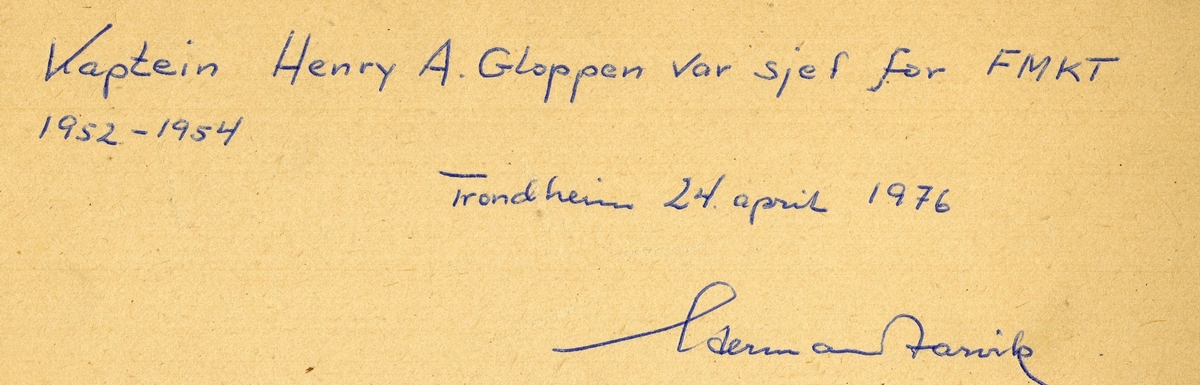 Kaptein Henry A. Gloppen var sjef for FMKT
1952-1954
Trondheim 24. april 1976
Herman